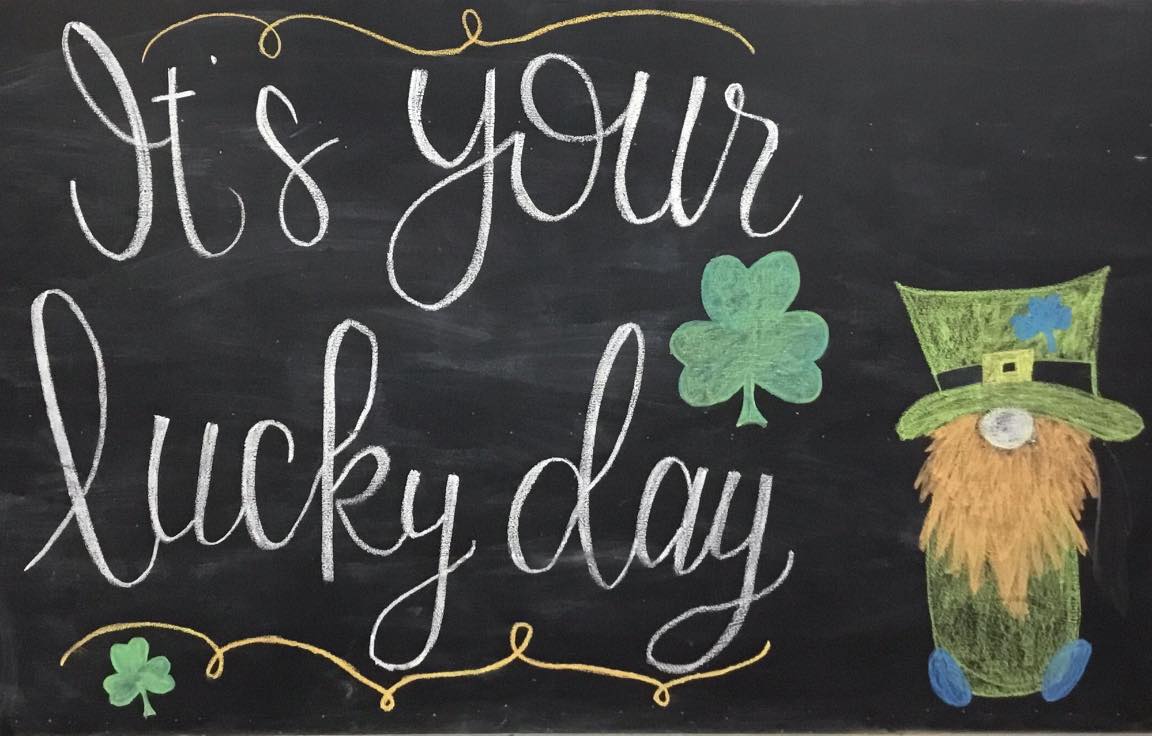 It's your
lucky day